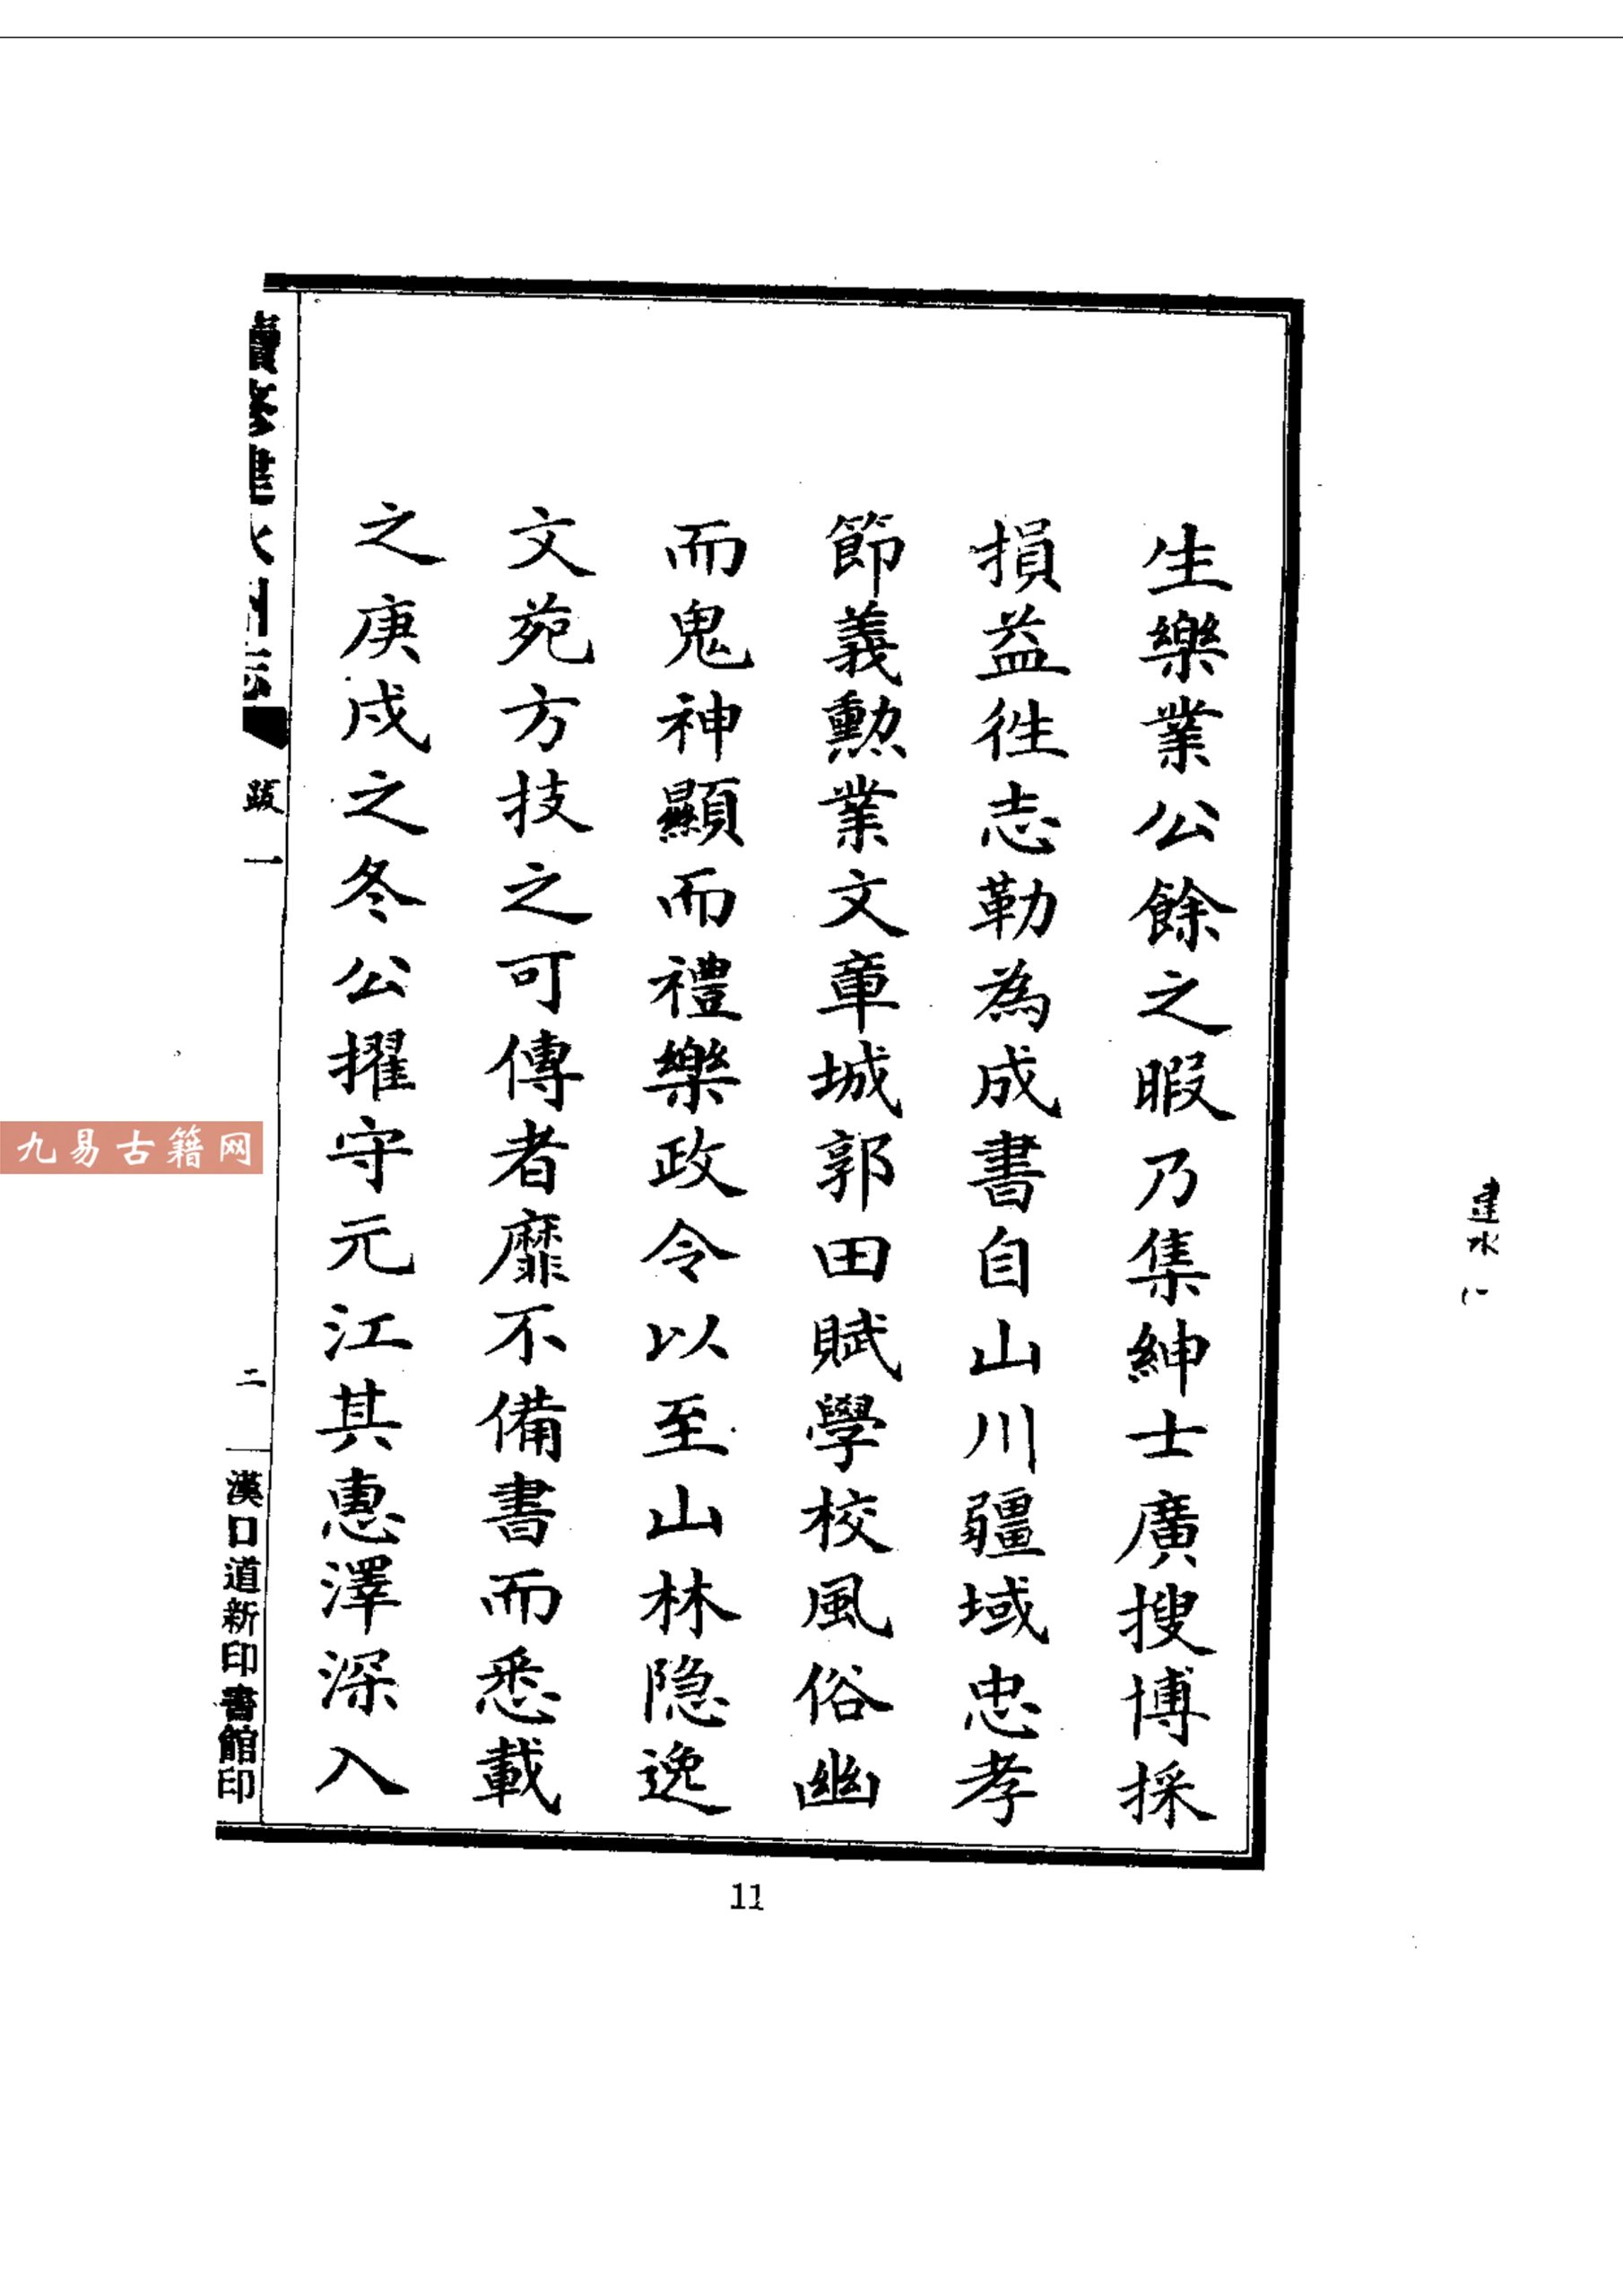 生樂業公餘之暇乃集紳士廣搜博採
損益徃志勒為成書自山川疆域忠孝
節義勳業文章城郭田賦學校風俗幽
而鬼神顯而禮樂政令以至山林隐逸
文苑方技之可傳者靡不備書而悉載
之庚戌之冬公擢守元江其惠澤深入
續修建水州志
跋一
二
漢口道新印書館印
建水
11
九易古籍网